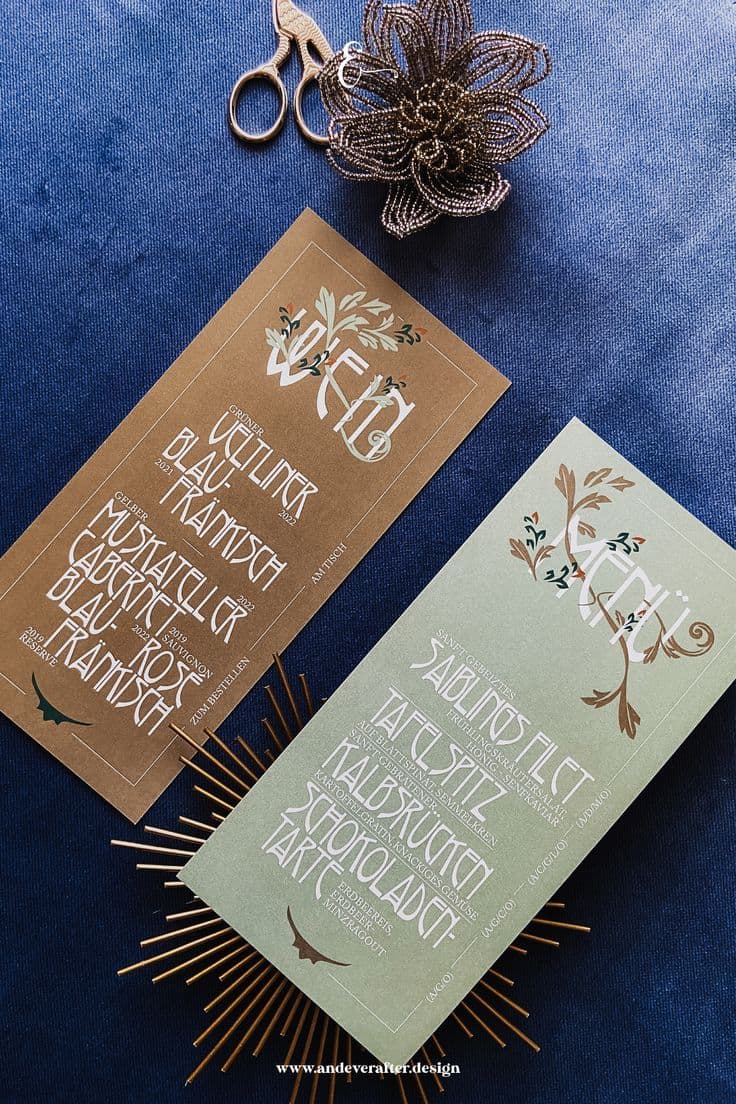 WEIN
GRÜNER
VELTLINER
2022
BLAU-
2021
FRÄNKISCH
AM TISCH
GELBER
MUSKATELLER
2022
CABERNET
2019
SAUVIGNON
BLAU-
2022
ROSÉ
FRÄNKISCH
2019
RESERVE
ZUM BESTELLEN
MENÜ
SANFT GEBEIZTES
SAIBLINGSFILET
FRÜHLINGSKRÄUTERSALAT,
HONIG-SENFKAVIAR
(A/D/M/O)
TAFELSPITZ
AUF BLATTSPINAT, SEMMELKREN
(A/C/G/L/O)
SANFT GEBRATENER
KALBSRÜCKEN
KARTOFFELGRATIN, KNACKIGES GEMÜSE
(A/G/C/O)
SCHOKOLADEN-
TARTE
ERDBEEREIS,
ERDBEER-
MINZRAGOUT
(A/G/O)
www.andeverafter.design